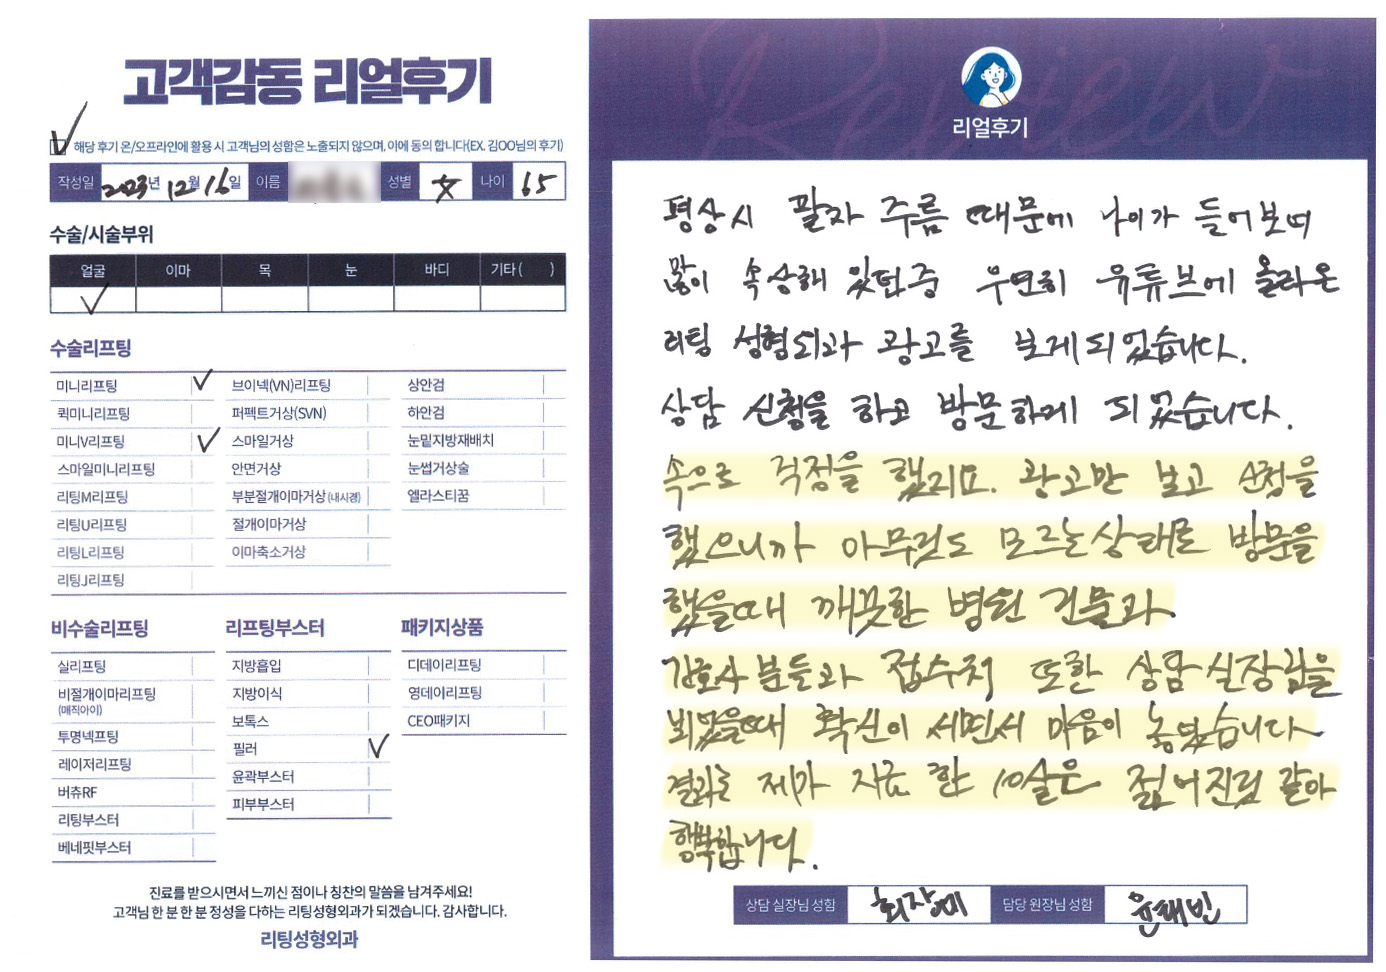 고객감동 리얼후기
해당 후기 온/오프라인에 활용 시 고객님의 성함은 노출되지 않으며, 이에 동의 합니다(EX. 김OO님의 후기)
작성일 2023년 12월 16일 이름 성별 女 나이 65
수술/시술부위
얼굴 이마 목 눈 바디 기타( )
수술리프팅
미니리프팅 브이넥(VN)리프팅 상안검
퀵미니리프팅 퍼펙트거상(SVN) 하안검
미니V리프팅 스마일거상 눈밑지방재배치
스마일미니리프팅 안면거상 눈썹거상술
리팅M리프팅 부분절개이마거상(내시경) 엘라스티꿈
리팅U리프팅 절개이마거상
리팅L리프팅 이마축소거상
리팅J리프팅
비수술리프팅 리프팅부스터 패키지상품
실리프팅 지방흡입 디데이리프팅
비절개이마리프팅 지방이식 영데이리프팅
(매직아이)
투명넥프팅 보톡스 CEO패키지
레이저리프팅 필러
버츄RF 윤곽부스터
리팅부스터 피부부스터
베네핏부스터
진료를 받으시면서 느끼신 점이나 칭찬의 말씀을 남겨주세요!
고객님 한 분 한 분 정성을 다하는 리팅성형외과가 되겠습니다. 감사합니다.
리팅성형외과
Review
리얼후기
평상시 팔자 주름 때문에 나이가 들어보여
많이 속상해 있던중 우연히 유튜브에 올라온
리팅 성형외과 광고를 보게되었습니다.
상담 신청을 하고 방문하게 되었습니다.
속으로 걱정을 했지요. 광고만 보고 신청을
했으니까 아무것도 모르는상태로 방문을
했을때 깨끗한 병원 건물과
간호사분들과 접수처 또한 상담실장님을
뵈었을때 확신이 세면서 마음이 놓였습니다
결과는 제가 지금 한 10살은 젊어진것 같아
행복합니다.
상담 실장님 성함 최장미 담당 원장님 성함 윤태빈